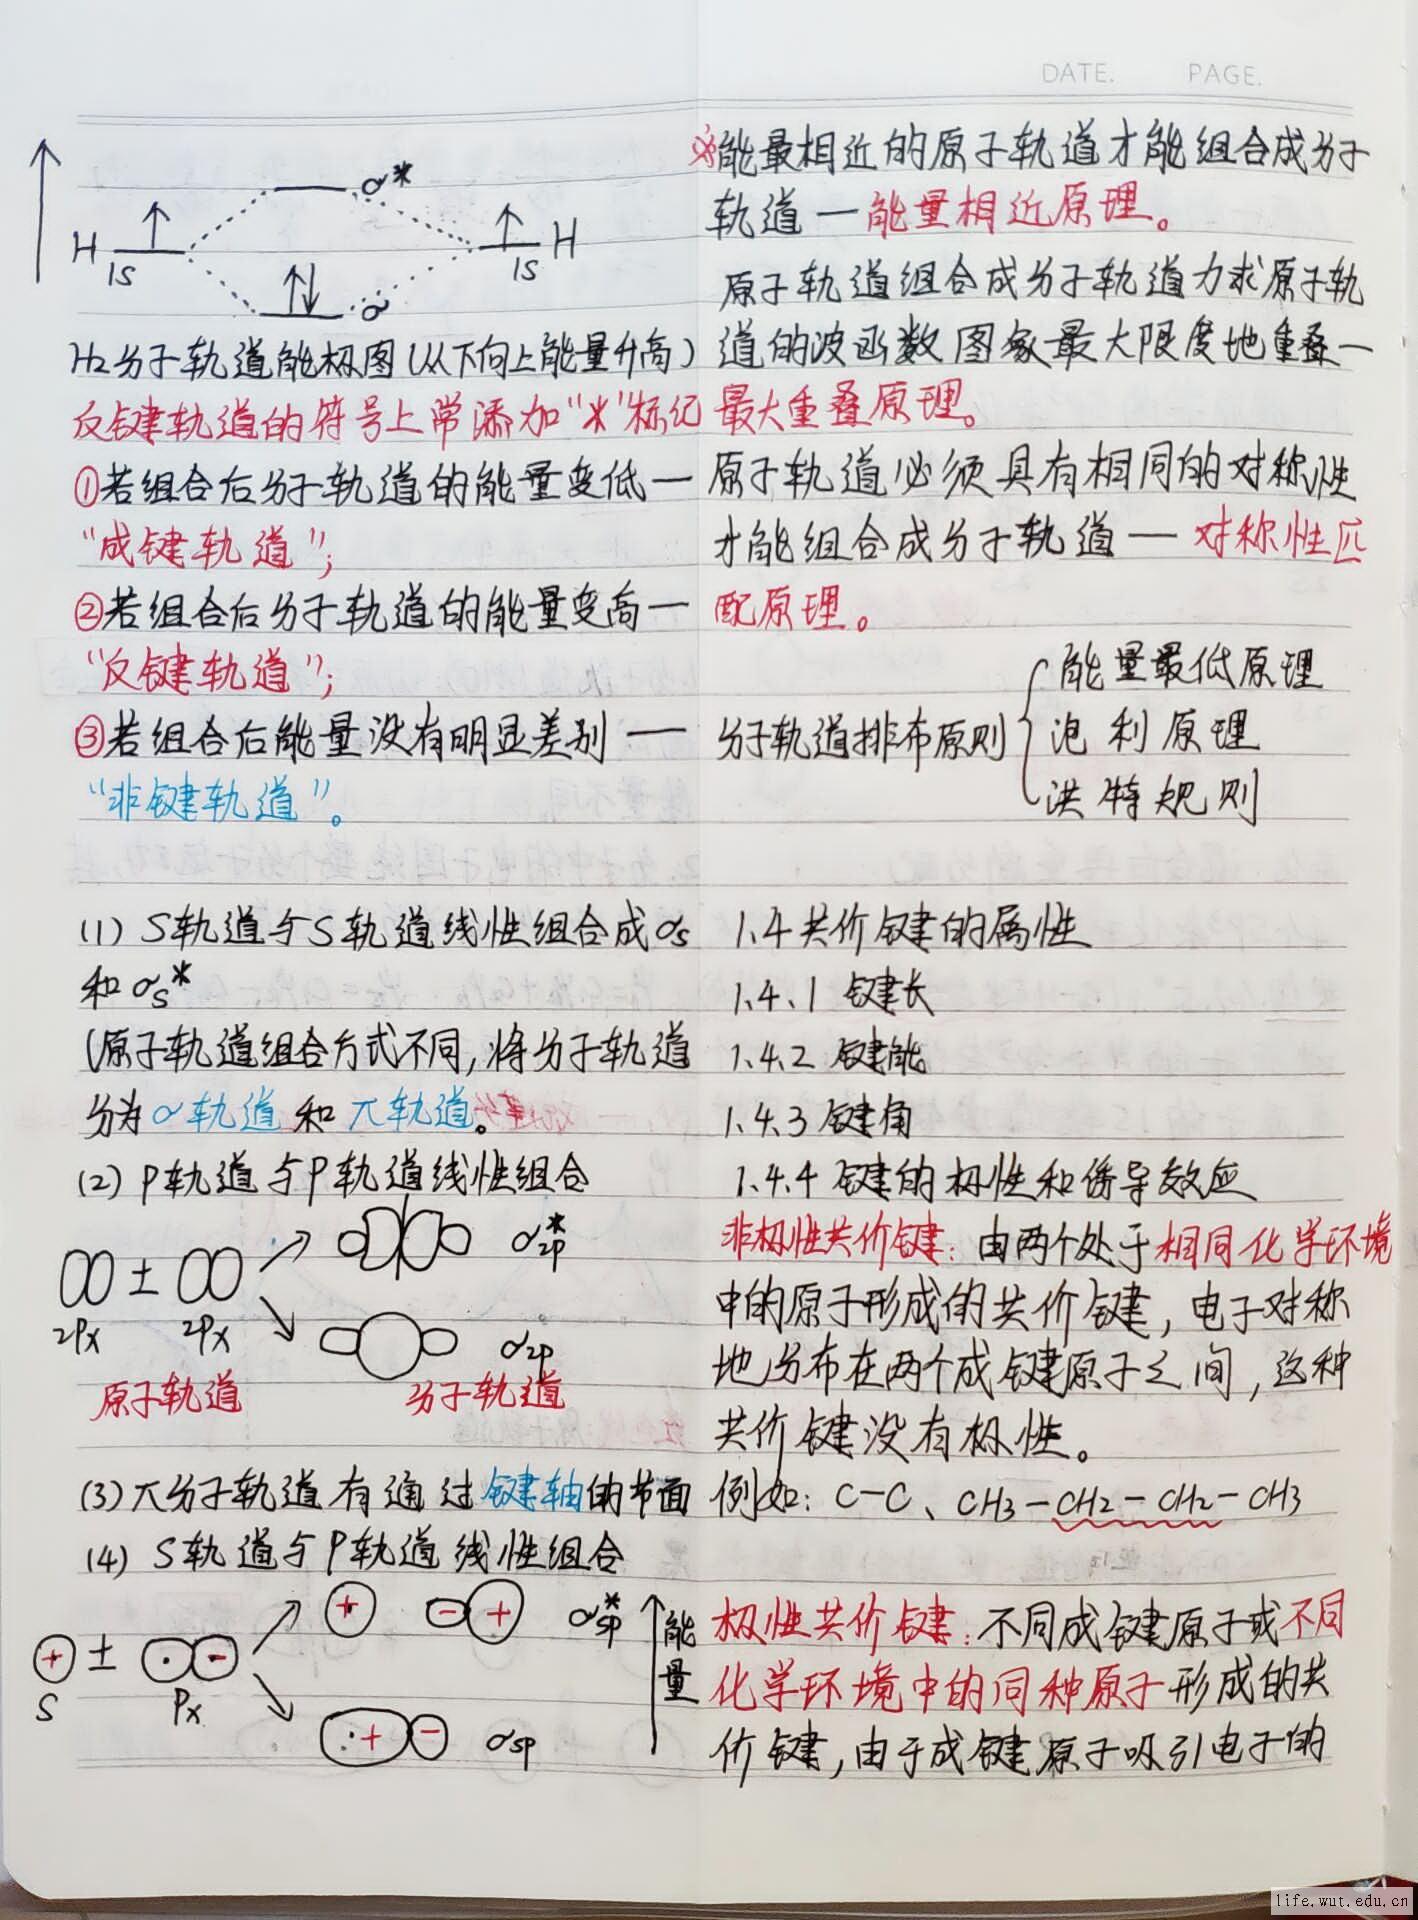 DATE. PAGE.
σ*
H
1S
1S
H
σ
H₂分子轨道能极图(从下向上能量升高)
反键轨道的符号上常添加“*”标记
①若组合后分子轨道的能量变低—
“成键轨道”;
②若组合后分子轨道的能量变高—
“反键轨道”;
③若组合后能量没有明显差别——
“非键轨道”。
(1) S轨道与S轨道线性组合成σs
和σs*
(原子轨道组合方式不同,将分子轨道
分为σ轨道和π轨道。
(2) P轨道与P轨道线性组合
±
σ*2p
2Px
2Px
σ2p
原子轨道
分子轨道
(3) π分子轨道有通过键轴的节面
(4) S轨道与P轨道线性组合
+
- +
σ*sp
能量
+ ± · -
S
Px
+ -
σsp
※能量相近的原子轨道才能组合成分子
轨道—能量相近原理。
原子轨道组合成分子轨道力求原子轨
道的波函数图象最大限度地重叠—
最大重叠原理。
原子轨道必须具有相同的对称性
才能组合成分子轨道——对称性匹
配原理。
分子轨道排布原则
能量最低原理
泡利原理
洪特规则
1.4 共价键的属性
1.4.1 键长
1.4.2 键能
1.4.3 键角
1.4.4 键的极性和诱导效应
非极性共价键:由两个处于相同化学环境
中的原子形成的共价键,电子对称
地分布在两个成键原子之间,这种
共价键没有极性。
例如:C-C、CH3-CH2-CH2-CH3
极性共价键:不同成键原子或不同
化学环境中的同种原子形成的共
价键,由于成键原子吸引电子的
life.wut.edu.cn